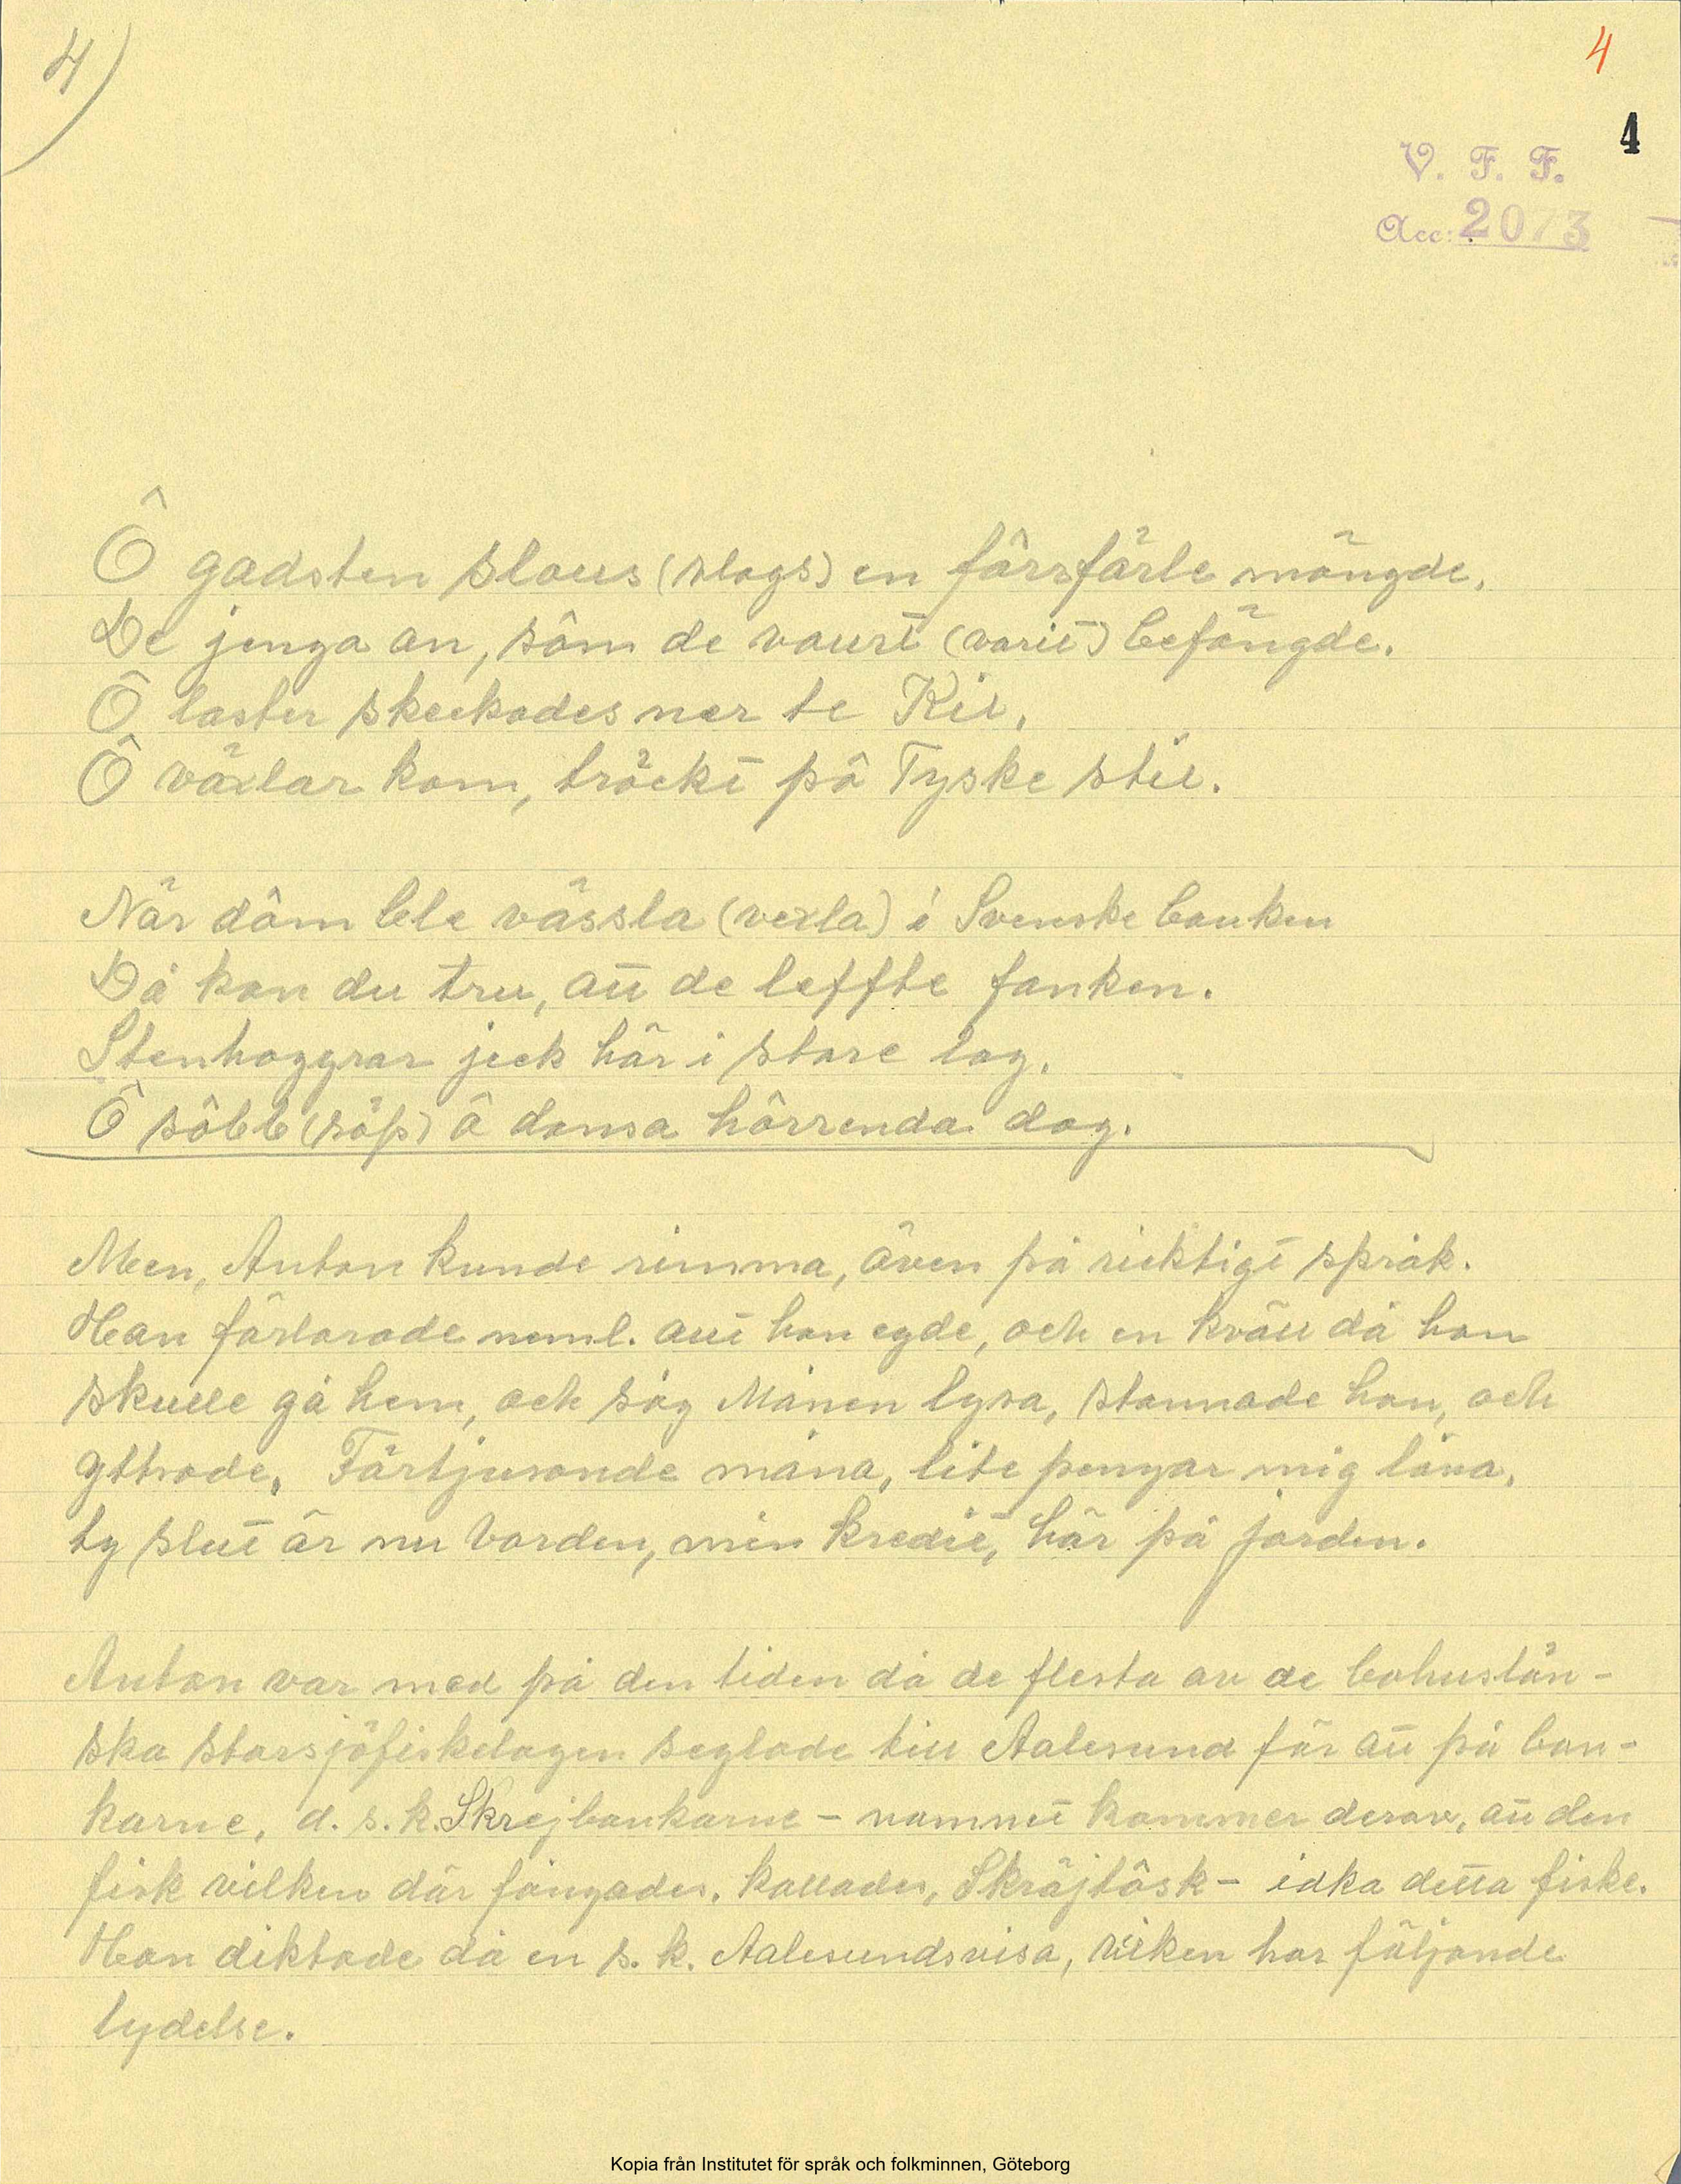 4)
4
4
V. F. F.
Acc: 2073
Ô gadsten slaus (slags) en fôrsfärle mängde,
De jenga an, sôm de vaurt (varit) befängde.
Ô laster skeckades ner te Kil,
Ô växlar kom, tröckt på Tyske stil.
När dôm ble vässla (vexla) i Svenske banken
Då kan du tru, att de leffte fanken.
Stenhoggrar jeck här i store lag,
Ô sôbb (söp) ô dansa hôrrenda dag.
Men, Anton kunde rimma, även på ricktigt språk.
Han förlorade neml. allt han egde, och en kväll då han
skulle gå hem, och såg Månen lysa, stannade han, och
yttrade, Förtjusande måna, lite pengar mig låna,
ty slut är nu vorden, min kredit, här på jorden.
Anton var med på den tiden då de flesta av de bohuslän-
ska storsjöfiskelagen seglade till Aalesund för att på ban-
karne, d. s. k. Skrejbankarne - namnet kommer derav, att den
fisk vilken där fångades, kallades, Skräjtôsk - idka detta fiske.
Han diktade då en s. k. Aalesundsvisa, vilken har följande
lydelse.
Kopia från Institutet för språk och folkminnen, Göteborg